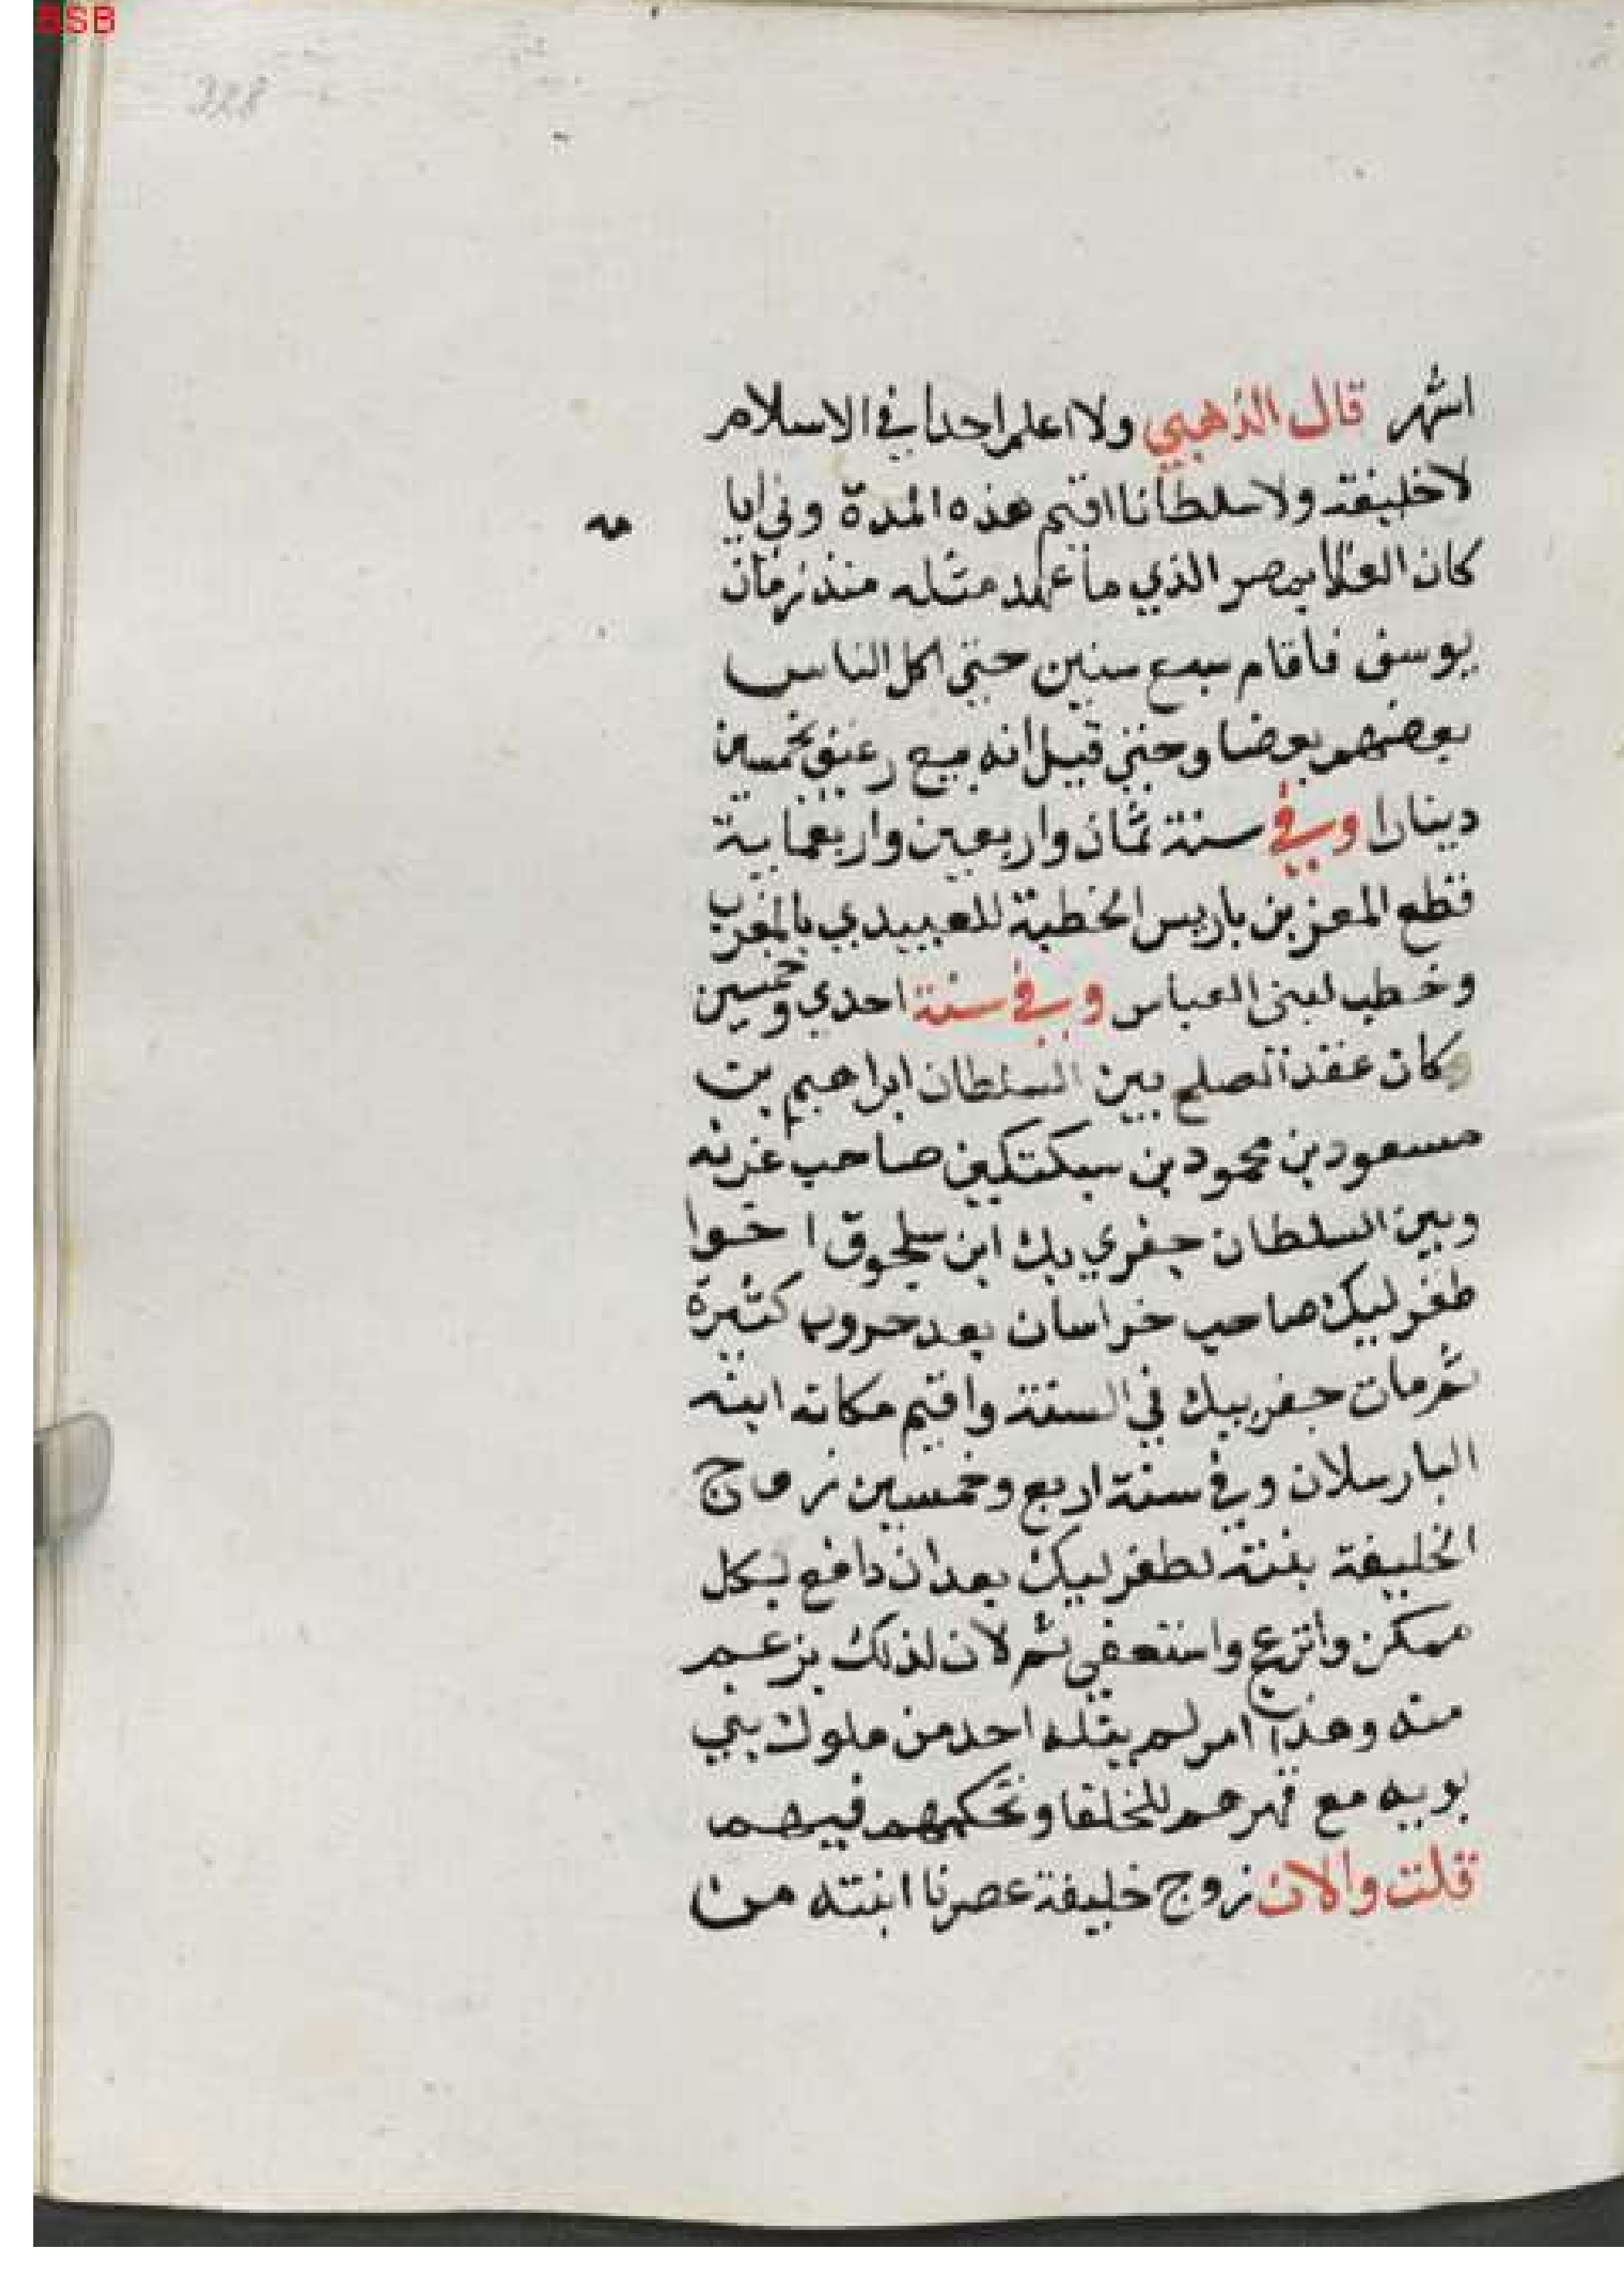 BSB
328
اشهر قال الذهبي ولا اعلم احدا في الاسلام
لا خليفة ولا سلطانا اقيم هذه المدة وفي ايا
مه
كان الغلا بمصر الذي ما عهد مثله منذ زمان
يوسف فاقام سبع سنين حتى اكل الناس
بعضهم بعضا وحتى قيل انه بيع رغيف بخمسين
دينارا وفي سنة ثمان واربعين واربعماية
قطع المعز بن باريس الخطبة للعبيدي بالمغرب
وخطب لبنى العباس وفي سنة احدي وخمسين
وكان عقد الصلح بين السلطان ابراهيم بن
مسعود بن محمود بن سبكتكين صاحب غزنه
وبين السلطان جفري بك ابن سلجوق اخوا
طغرلبيك صاحب خراسان بعد حروب كثيرة
ثم مات جفربيك في السنة واقيم مكانه ابنه
البارسلان وفي سنة اربع وخمسين زوج
الخليفة بنته لطغرلبيك بعد ان دافع بكل
ممكن وانزعج واستعفى ثم لان لذلك بزعم
منه وهذا امر لم ينله احد من ملوك بني
بويه مع قهرهم للخلفا وتحكمهم فيهم
قلت والان زوج خليفة عصرنا ابنته من